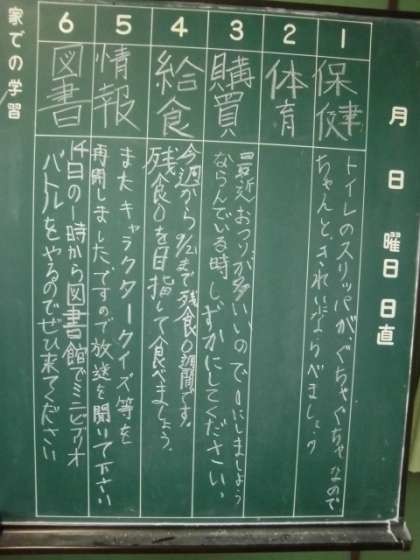 月 日 曜日 日直
1
保健
トイレのスリッパが、ぐちゃぐちゃなので
ちゃんと、きれいにならべましょう
2
体育
3
購買
最近おつりが多いので0にしましょう
ならんでいる時、しずかにしてください。
4
給食
今週から9/21まで残食0週間です。
残食0を目指して食べましょう。
5
情報
またキャラクタークイズ等を
再開しましたですので放送を聞いて下さい
6
図書
14日の1時から図書館でミニビブリオ
バトルをやるのでぜひ来てください
家での学習